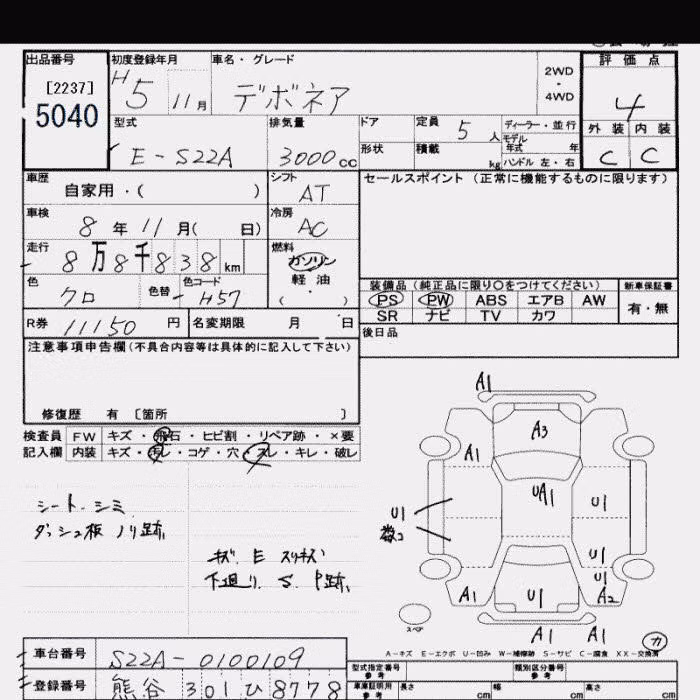 出品番号
[2237]
5040
初度登録年月
H5 11月
車名・グレード
デボネア
2WD
・
4WD
評価点
4
外装 内装
C C
型式
E-S22A
排気量
3000cc
ドア
形状
定員 5人
積載 kg
ディーラー・並行
モデル
年式 年
ハンドル 左・右
車歴
自家用・( )
シフト
AT
セールスポイント(正常に機能するものに限ります)
車検
8年11月( 日)
冷房
AC
走行
8万8千838km
燃料
ガソリン
軽油
・
( )
色
クロ
色替
色コード
H57
装備品(純正品に限り○をつけてください)
PS PW ABS エアB AW
SR ナビ TV カワ
新車保証書
有・無
R券 11150円
名変期限 月 日
後日品
注意事項申告欄(不具合内容等は具体的に記入して下さい)
修復歴 有 [箇所 ]
検査員 FW キズ・飛石・ヒビ割・リペア跡・×要
記入欄 内装 キズ・汚レ・コゲ・穴・スレ・キレ・破レ
シート シミ
ダッシュ板 ノリ跡
キズ E スリキズ
下廻り S P跡
A1
A3
A1
UA1
U1
U1
数コ
U1
U1
A1
U1
A2
A1
A1
スペア
カ
A-キズ E-エクボ U-凹み W-補修跡 S-サビ C-腐食 XX-交換済
車台番号
S22A-0100109
登録番号
熊谷 301 ひ 8778
型式指定番号
参考
類別区分番号
参考
車庫証明用
参考
長さ cm
幅 cm
高さ cm